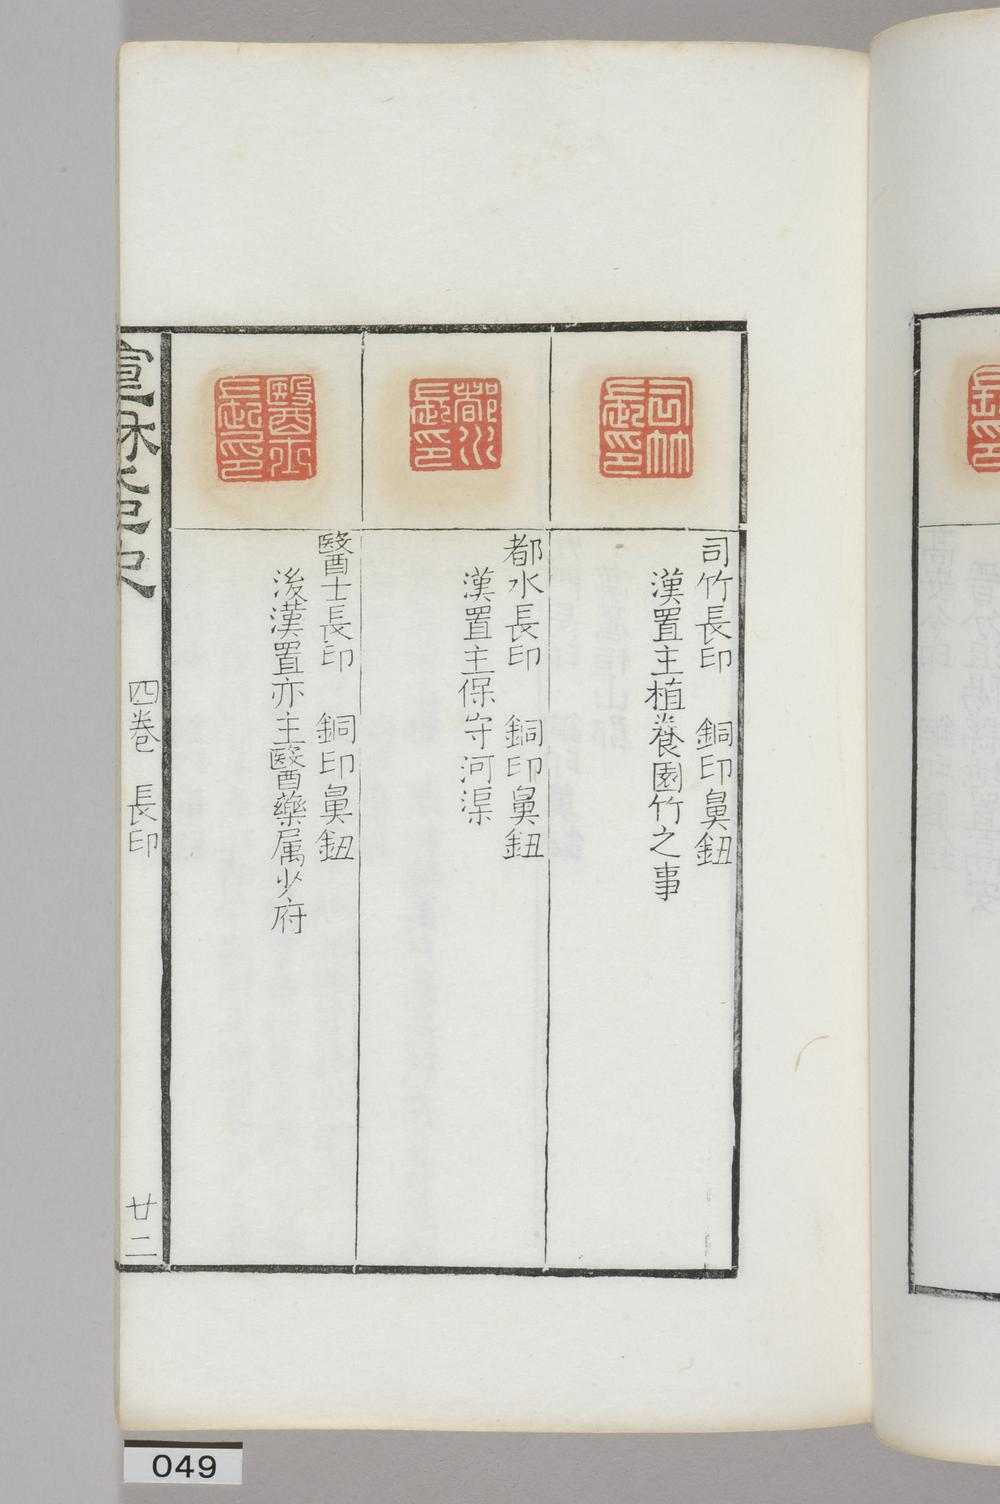 司竹長印
司竹長印　銅印鼻鈕
漢置主植養園竹之事
都水長印
都水長印　銅印鼻鈕
漢置主保守河渠
醫工長印
醫士長印　銅印鼻鈕
後漢置亦主醫藥属少府
宣龢集古印史
四卷　長印
廿二
049